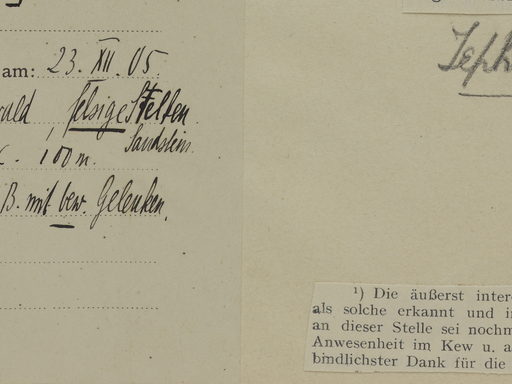 am: 23. XII. 05.
ald, felsige Stellen
Sandstein.
100 m.
B. mit bew. Gelenken.
Teph
¹) Die äußerst inter
als solche erkannt und i
an dieser Stelle sei nochm
Anwesenheit im Kew u. a
bindlichster Dank für die